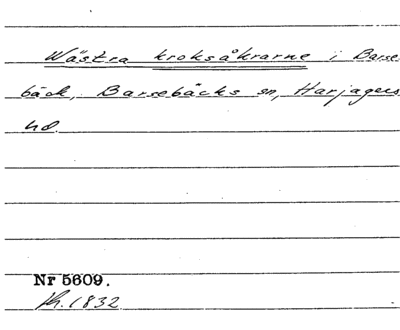 Wästra kroksåkrarne i Barse
bäck, Barsebäcks sn, Harjagers
hd.
Nr 5609.
1832